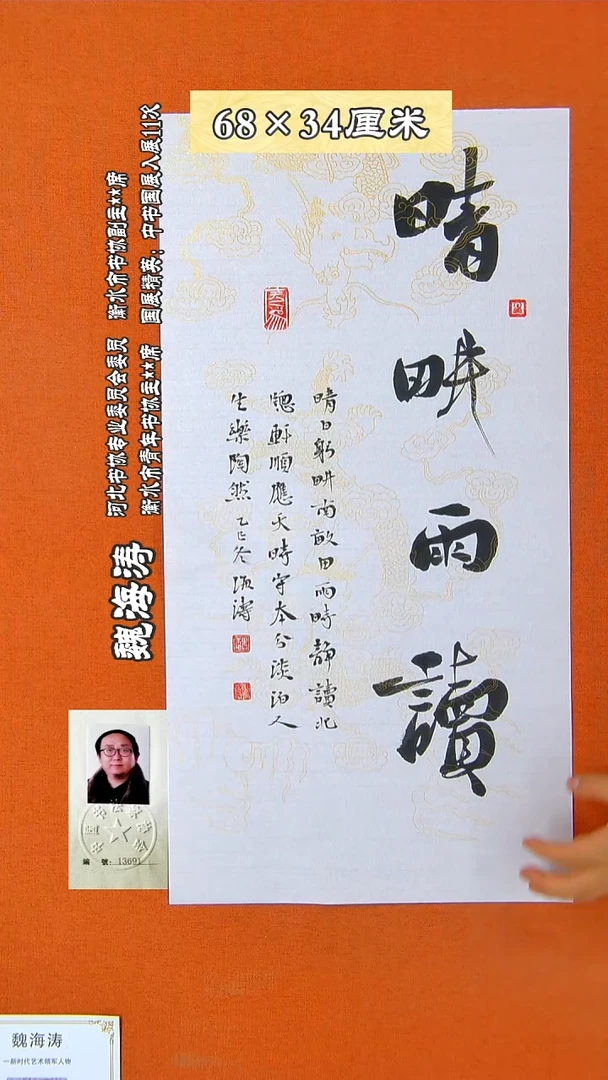 68×34厘米
晴畊雨讀
晴日躬畊南畝田雨時靜讀北
窻軒順應天時守本分淡泊人
生樂陶然 乙巳冬 海濤
国展精英：中书国展入展11次
衡水市青年书协主**席
衡水市书协副主**席
河北书协专业委员会委员
魏海涛
编 號：13691
魏海涛
—新时代艺术领军人物